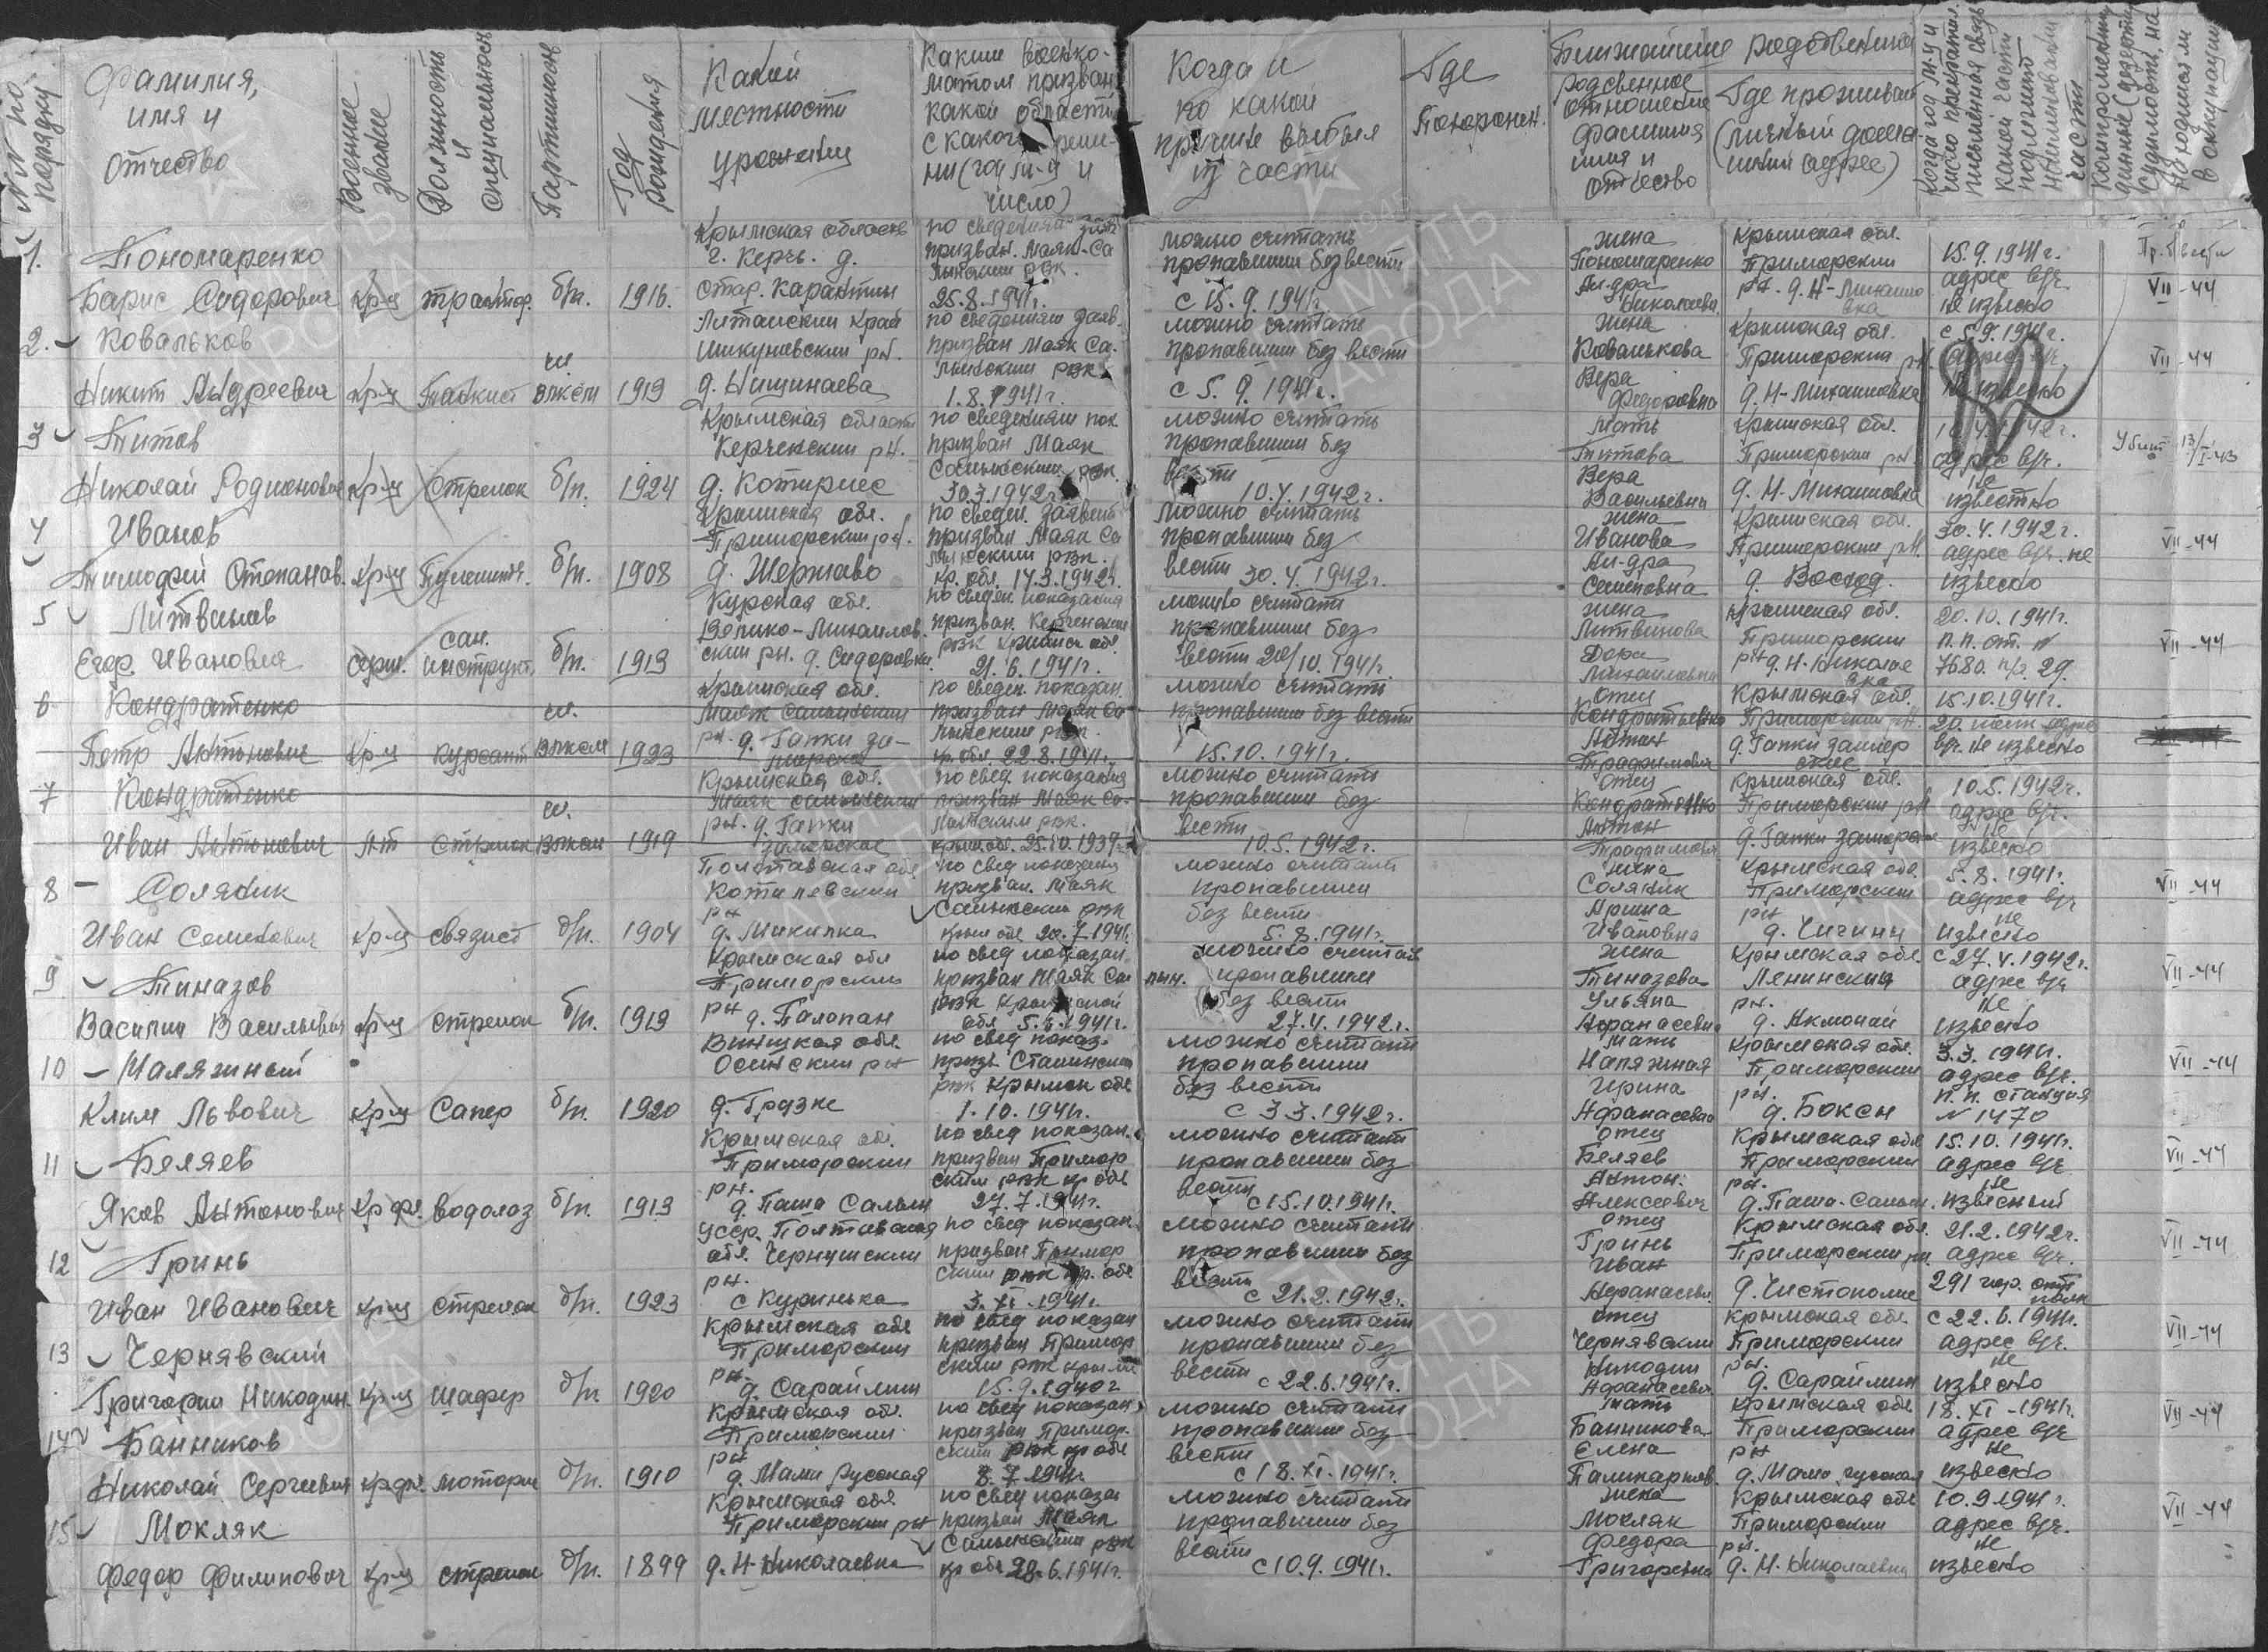 №№ по порядку
Фамилия, имя и отчество
Военное звание
Должность и специальность
Партийность
Год рождения
Какой местности уроженец
Каким военкоматом призван какой области с какого (год м-ц и число)
Когда и по какой причине выбыл из части
Где похоронен.
Ближайшие родственники
родсвенное отношение фамилия имя и отчество
Где проживал (личный домашний адрес)
Когда год м-ц и число прекратил. письменная связь какой части
Находился ли в оккупации
1. Пономаренко
Борис Сидорович кр-ц трактор. б/п. 1916.
Крымская область
г. Керчь. д.
Стар. Карантин
по сведениям заяв
призван. Маяк-Са
лынским рвк.
25.8.1941г.
можно считать
пропавшим без вести
с 15.9.1941г.
жена
Пономаренко
Ал-дра
Николаевна
Крымская обл.
Приморский
рн. д. Н-Михайло
вка
15.9.1941г.
адрес в/ч.
не извесно
Пр. б/вести
VII-44
2. Ковальков
Никит Андреевич кр-ц Танкист чл. ВЛКСМ 1919
Алтайский край
рн.
по сведениям заяв.
призван Маяк Са-
лынским рвк
1.8.1941г.
можно считать
пропавшим без вести
с 5.9.1941г.
жена
Ковалькова
Вера
Федоровна
Крымская обл.
Приморский рн
д. Н-Михайловка
с 5.9.1941г.
адрес в/ч.
не извесно
VII-44
3 Титов
Николай Родионович кр-ц стрелок б/п. 1924
Крымская область
Керченский рн.
по сведениям пок
призван Маяк
Салынским рвк.
30.3.1942г.
можно считать
пропавшим без
вести
10.4.1942г.
мать
Титова
Вера
Васильевна
Крымская обл.
Приморский рн
д. Н-Михайловка
адрес в/ч.
не
известно
Убит 13/I-43
4 Иванов
Тимофей Степанов. кр-ц Пулеметч. б/п. 1908
Крымская обл.
Приморский рн.
по сведен. заявит
призван Маяк Са
лынским рвк.
кр. обл. 14.3.1942г.
можно считать
пропавшим без
вести 30.4.1942г.
жена
Иванова
Ал-дра
Семеновна
Крымская обл.
Приморский рн.
д. Восход.
30.4.1942г.
адрес в/ч. не
извесно
VII-44
5 Литвинов
Егор Иванович серж. сан. инструкт. б/п. 1919
Курская обл.
Велико-Михайлов.
ский рн. д. Сидоровка
по сведен. показания
призван. Керченским
рвк Крымск обл.
21.6.1941г.
можно считать
пропавшим без
вести 20/10.1941г.
жена
Литвинова
Дора
Михайловна
Крымская обл.
Приморский
рн д. Н-Николае
вка
20.10.1941г.
п.п. от.
7680. п/я 29.
VII-44
6 Кондратенко
Петр Антонович кр-ц курсант чл. ВЛКСМ 1923
Крымская обл.
Маяк Салынский
рн. д. Гапки за-
морские
по сведен. показан.
призван Маяк Са
лынским рвк.
кр. обл. 22.8.1941г.
можно считать
пропавшим без вести
15.10.1941г.
отец
Кондратенко
Антон
Трофимович
Крымская обл.
Приморский рн.
д. Гапки замор
ские
15.10.1941г.
в/ч. не извесно
7 Кондратенко
Иван Антонович стрелок чл. ВЛКСМ 1919
Крымская обл.
Маяк Салынский
рн. д. Гапки
заморские
по свед. показания
призван Маяк Са-
лынским рвк.
крым. обл. 25.10.1939г.
можно считать
пропавшим без
вести
10.5.1942г.
отец
Кондратенко
Антон
Трофимович
Крымская обл.
Приморский рн
д. Гапки заморские
10.5.1942г.
адрес в/ч.
не
извесно
8 - Соляник
Иван Семенович кр-ц связист б/п. 1904
Полтавская обл
Котелевский
рн
по свед показания
призван. Маяк
Салынским рвк
крым обл 20.7.1941г.
можно считать
пропавшим
без вести
5.8.1941г.
жена
Соляник
Арина
Ивановна
Крымская обл.
Приморский
рн
5.8.1941г.
адрес в/ч
не
извесно
VII-44
9 Тиназов
Василий Васильевич кр-ц стрелок б/п. 1919
Крымская обл
Приморский
рн
по свед показан.
призван Маяк Са
лын.
рвк Крымской
можно считать
пропавшим
без вести
27.4.1942г.
жена
Тиназова
Ульяна
Афанасевна
Крымская обл.
Ленинский
рн.
д. Акмонай
с 27.4.1942г.
адрес в/ч
не
извесно
VII-44
10 -
Клим Львович кр-ц Сапер б/п. 1920
по свед показ.
призв. Сталинским
рвк Крымск обл
1.10.1941г.
можно считать
пропавшим
без вести
с 3.3.1942г.
мать
Ирина
Афанасевна
Крымская обл.
Приморский
рн.
3.3.1941г.
адрес в/ч.
п.п. станция
№ 1470
VII-44
11 Беляев
Яков Антонович кр фл. водолаз б/п. 1913
Крымская обл.
Приморский
рн.
д. Паша Салын
по свед показан.
призван Примор
ским рвк кр обл
27.7.1941г.
можно считать
пропавшим без
вести
с 15.10.1941г.
отец
Беляев
Антон.
Алексеевич
Крымская обл
Приморский
рн.
д. Паша-Салын.
15.10.1941г.
адрес в/ч
не
извесный
VII-44
12 Гринь
Иван Иванович кр-ц стрелок б/п. 1923
Усср. Полтавская
обл. Чернушский
рн.
с Куринька
по свед показан.
призван Примор
ским рвк кр. обл
3.XI.1941г.
можно считать
пропавшим без
вести
с 21.2.1942г.
отец
Гринь
Иван
Афанасев.
Крымская обл.
Приморский рн.
д. Чистополье
21.2.1942г.
адрес в/ч.
291 полк
VII-44
13 Чернявский
Григорий Никодим. кр-ц шафер б/п. 1920
Крымская обл
Приморский
рн.
д. Сараймин
по свед показан
призван Примор
ским рвк крым
15.9.1940г
можно считать
пропавшим без
вести
с 22.6.1941г.
отец
Чернявский
Никодим
Афанасевич
Крымская обл
Приморский
рн.
д. Сараймин
с 22.6.1941г.
адрес в/ч.
не
извесно
VII-44
14 Банников
Николай Сергеевич кр фл. моторис б/п. 1910
Крымская обл.
Приморский
рн
д. Мама Русская
по свед показан.
призван Примор.
ский рвк кр обл
8.7.1941г
можно считать
пропавшим без
вести
с 18.XI.1941г.
мать
Банникова
Елена
Крымская обл
Приморский
рн
д. Мама русская
18.XI-1941г.
адрес в/ч
не
извесно
VII-44
15 Мокляк
Федор Филипович кр-ц стрелок б/п. 1899
Крымская обл
Приморский рн
д. Н-Николаевка
по свед показан
призван Маяк
Салынским рвк
кр обл 28.6.1941г.
можно считать
пропавшим без
вести
с 10.9.1941г.
жена
Мокляк
Федора
Григоревна
Крымская обл
Приморский
рн.
д. Н. Николаевка
10.9.1941г.
адрес в/ч.
не
извесно
VII-44